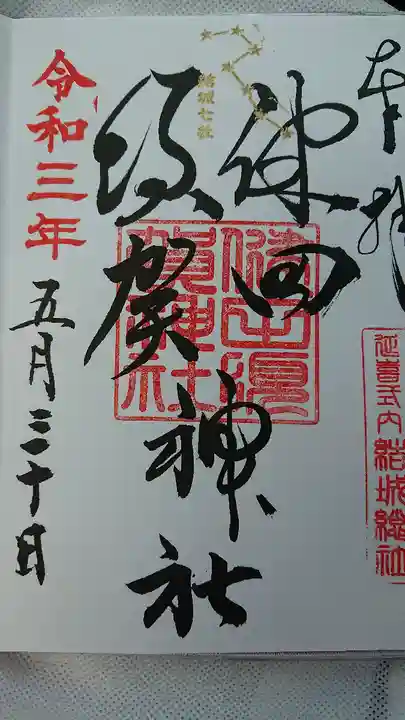 奉拝
延喜式内 結城總社
健田
須賀
神社
結城七社
健田須
賀神社
令和三年
五月三十日